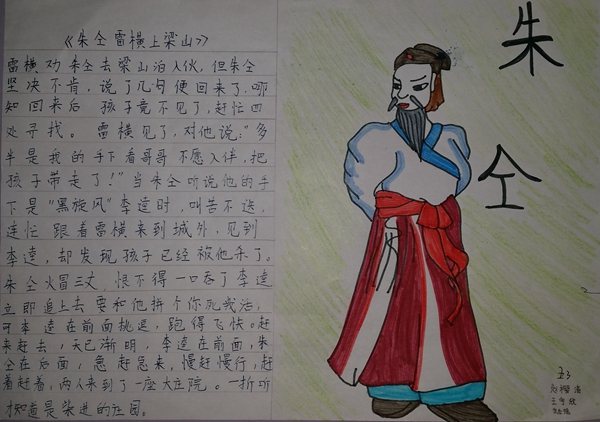 《朱仝雷横上梁山》
雷横劝朱仝去梁山泊入伙,但朱仝
坚决不肯,说了几句便回来了,哪
知回来后 孩子竟不见了,赶忙四
处寻找。 雷横见了,对他说:“多
半是我的手下看哥哥不愿入伴,把
孩子带走了!”当朱仝听说他的手
下是“黑旋风”李逵时,叫苦不迭,
连忙跟着雷横来到城外,见到
李逵,却发现孩子已经被他杀了。
朱仝火冒三丈,恨不得一口吞了李逵
立即追上去要和他拼个你死我活,
可李逵在前面挑逗,跑得飞快。赶
来赶去,天已渐明,李逵在前面,朱
仝在后面,急赶急来,慢赶慢行,赶
着赶着,两人来到了一座大庄院。一折听
才知道是柴进的庄园。
朱
仝